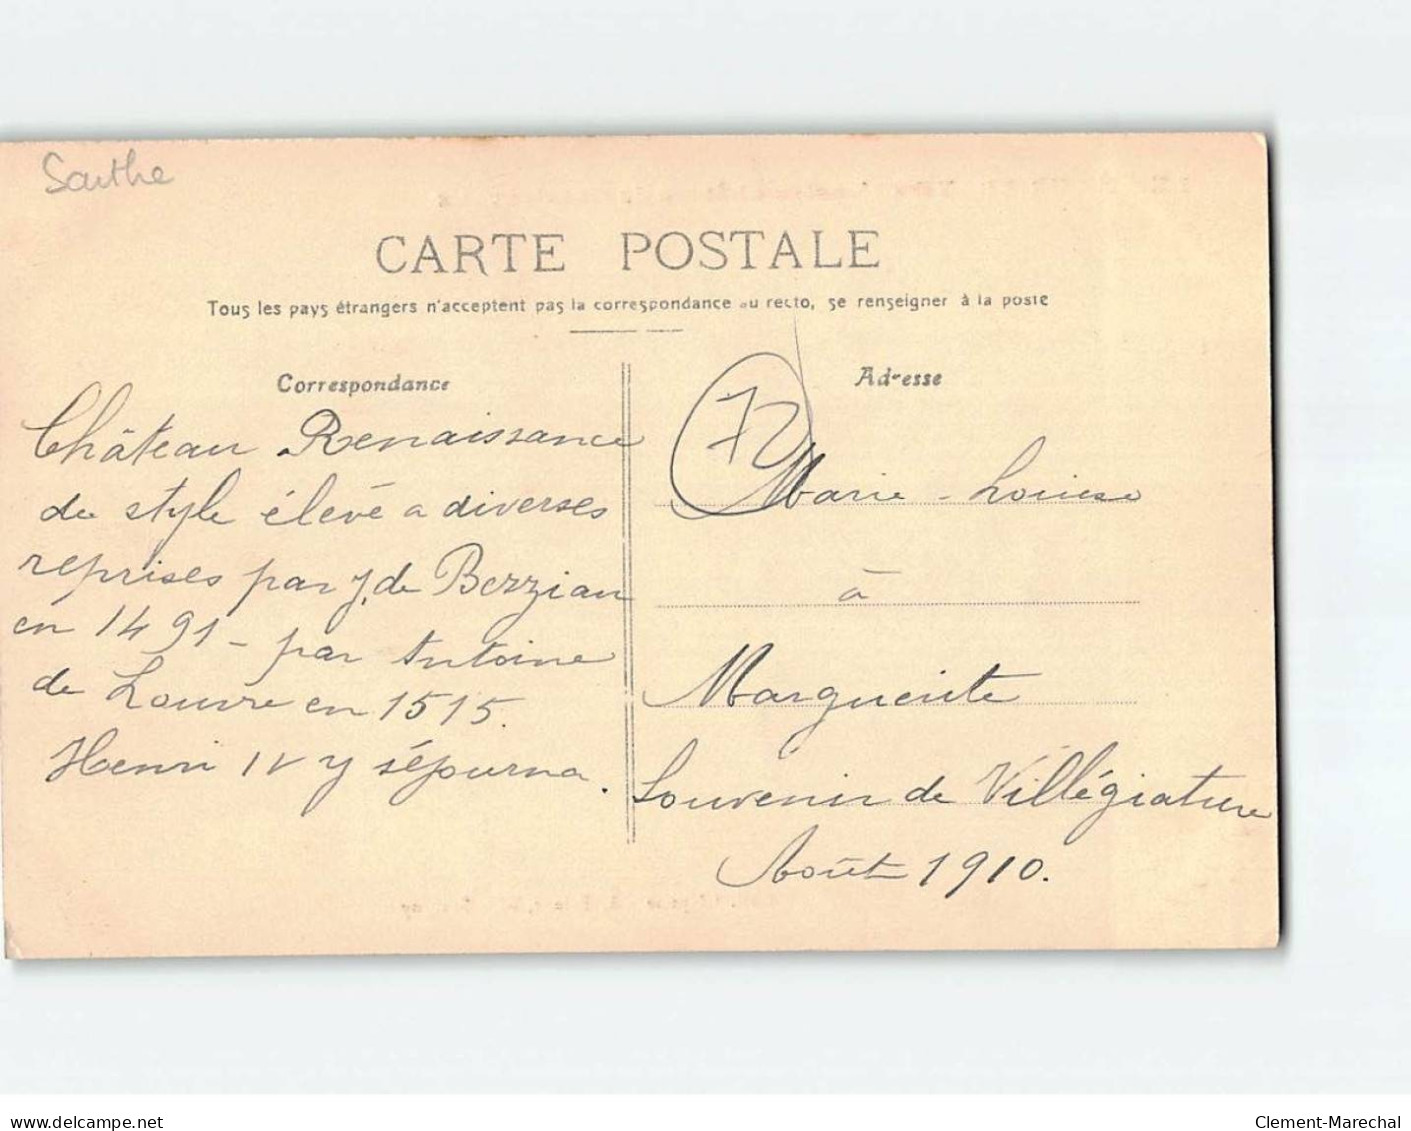 Sarthe
CARTE POSTALE
Tous les pays étrangers n'acceptent pas la correspondance au recto, se renseigner à la poste
Correspondance
Château Renaissance
de style élevé a diverses
reprises par J. de Berzian
en 1491 - par Antoine
de Louvre en 1515.
Henri IV y séjourna.
Adresse
72
Marie-Louise
à
Marguerite
Souvenir de Villégiature
Août 1910.
www.delcampe.net
Clement-Marechal